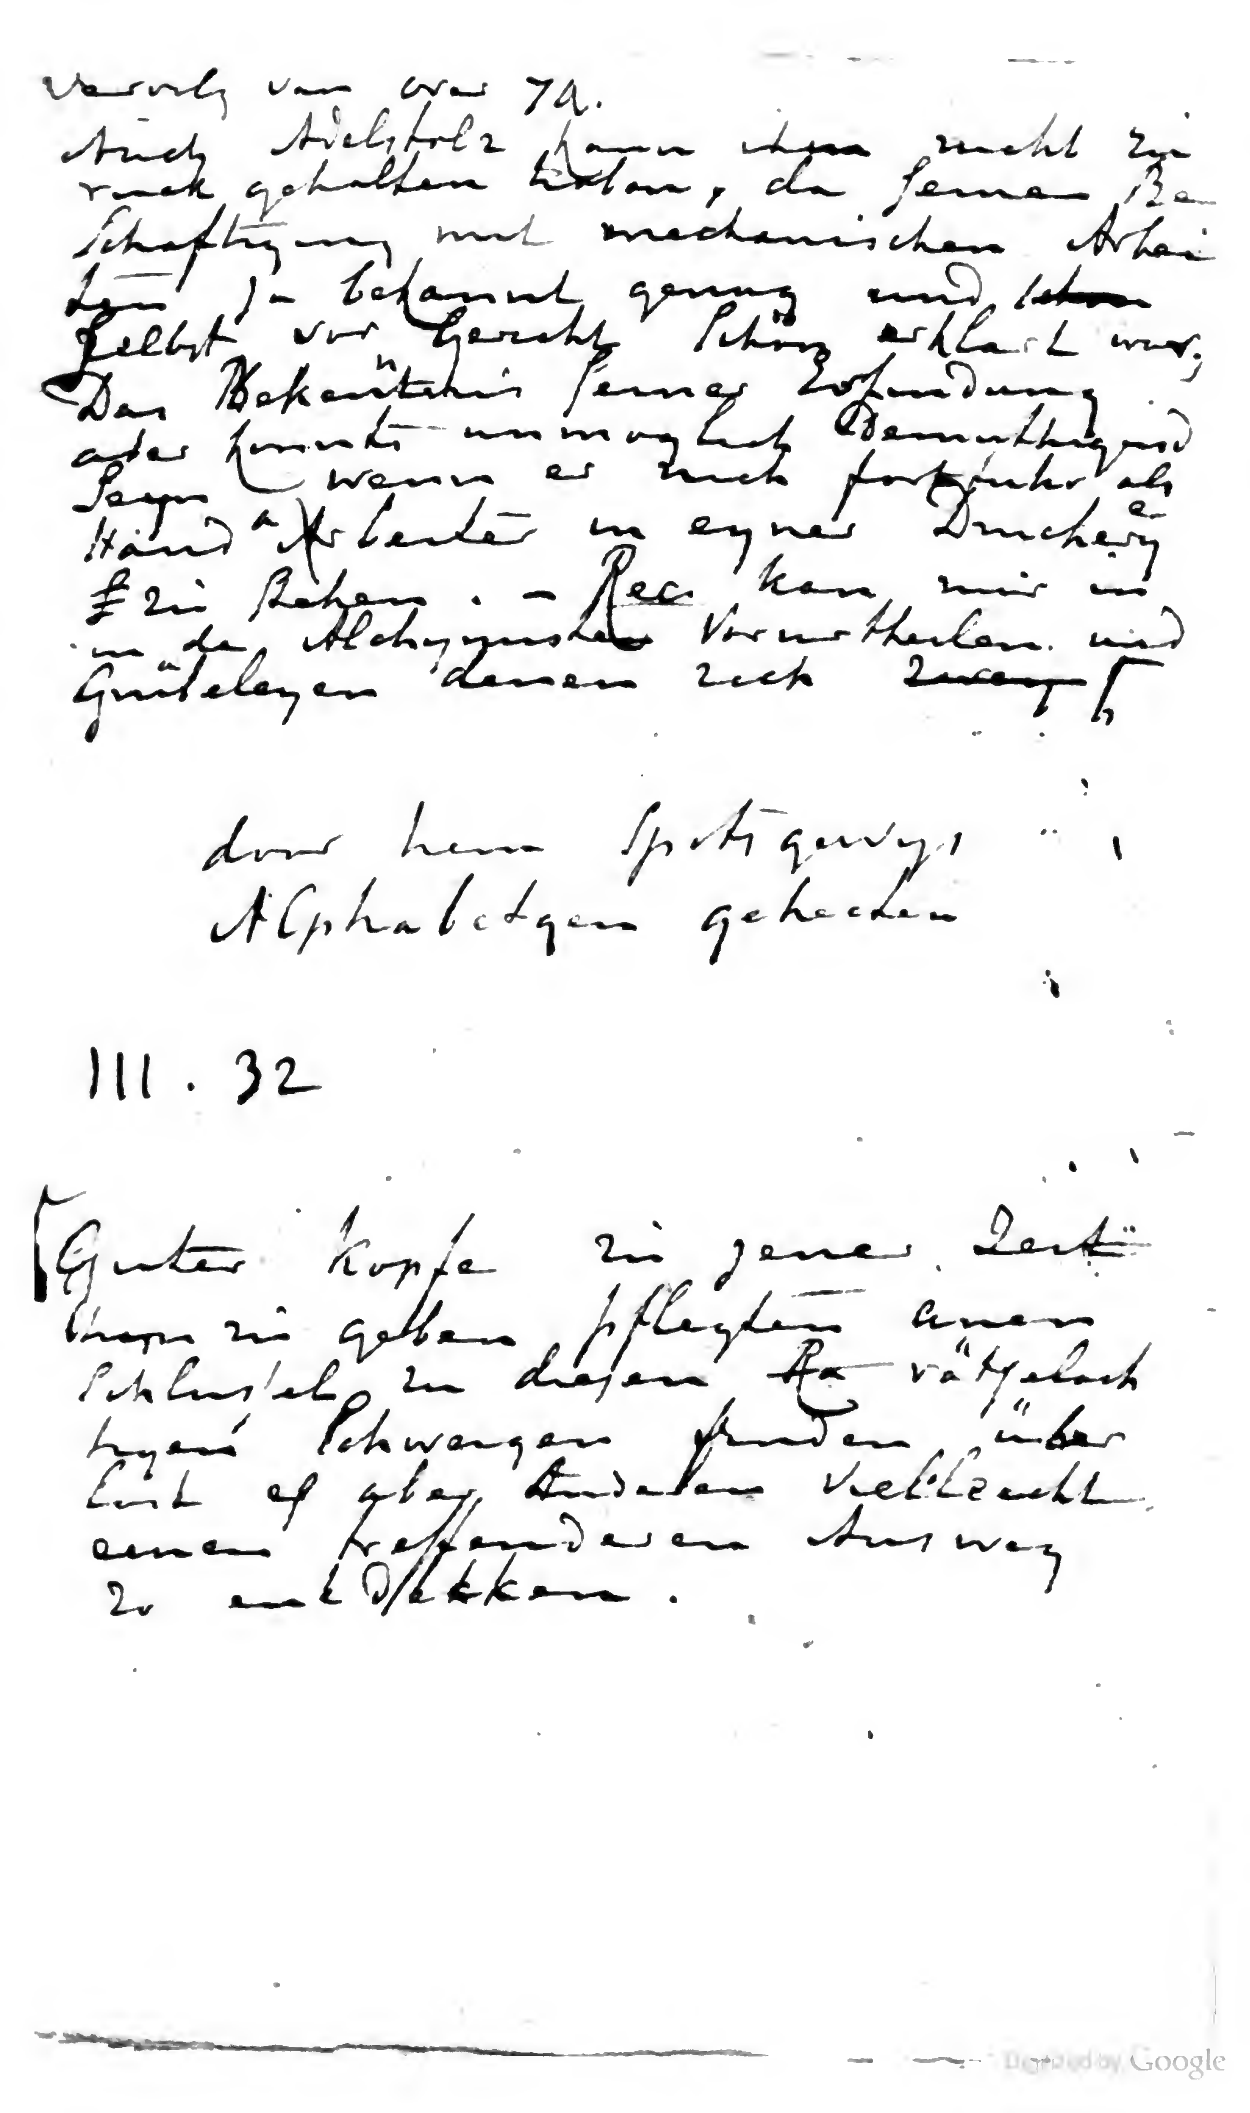 Vervolg van over 7a.
Auch Adelstolz kann ihm nicht zu
ruck gehalten haben, da seinen Be
schaftigung mit mechanischen Arbei
ten ja bekannt genug und schon
selbst vor Gericht schon erklart war,
Das Bekentnis seiner Erfindung
ader konnte unmoglich Demuthigend
seyn wenn er nich fortfuhr als
Hand Arbeiter in eyner Druckerey
zu stehen. - Rec. kan nur in
in de Alchymisten Vorurtheilen und
Grübeleyen denen sich zwey
door hem Spotsgewys
Alphabetgen geheeten
III. 32
Guter Kopfe zu jener Zeit
hin zu geben pflegten einen
Schlussel zu diesen Ra rätselach
tigen Schweigen finden über
last es aber Anderen vielleicht
einen treffenderen Ausweg
zo entdekken.
Digitized by Google